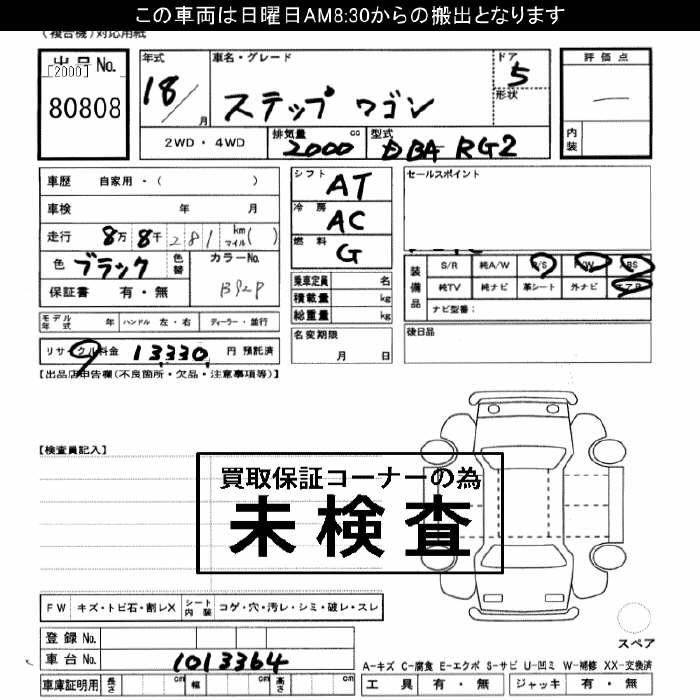 この車両は日曜日AM8:30からの搬出となります
(複合機)対応用紙
出品No.
[2000]
80808
年式
18/
月
車名・グレード
ステップ ワゴン
ドア
5
形状
評価点
内装
2WD・4WD
排気量
2000
cc
型式
DBA RG2
車歴 自家用・( )
車検 年 月
走行 8万 8千 281 km マイル( )
色 ブラック
色替
カラーNo.
B92P
保証書 有・無
シフト
AT
冷房
AC
燃料
G
乗車定員 名
積載量 kg
総重量 kg
セールスポイント
装備品
S/R 純A/W P/S P/W ABS
純TV 純ナビ 革シート 外ナビ エアB
ナビ型番:
モデル年式 年 ハンドル 左・右 ディーラー・並行
名変期限
月 日
後日品
リサイクル料金 13,330 円 預託済
【出品店申告欄(不良箇所・欠品・注意事項等)】
【検査員記入】
買取保証コーナーの為
未検査
FW キズ・トビ石・割レX シート内装 コゲ・穴・汚レ・シミ・破レ・スレ
スペア
登録No.
車台No. 1013364
A-キズ C-腐食 E-エクボ S-サビ U-凹ミ W-補修 XX-交換済
車庫証明用 長さ cm 幅 cm 高さ cm
工具 有・無 ジャッキ 有・無